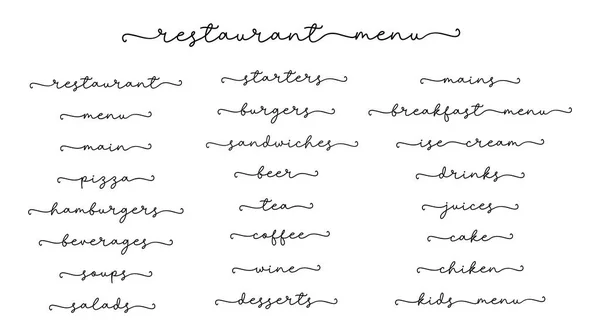 restaurant menu
restaurant
menu
main
pizza
hamburgers
beverages
soups
salads
starters
burgers
sandwiches
beer
tea
coffee
wine
desserts
mains
breakfast menu
ise cream
drinks
juices
cake
chiken
kids menu